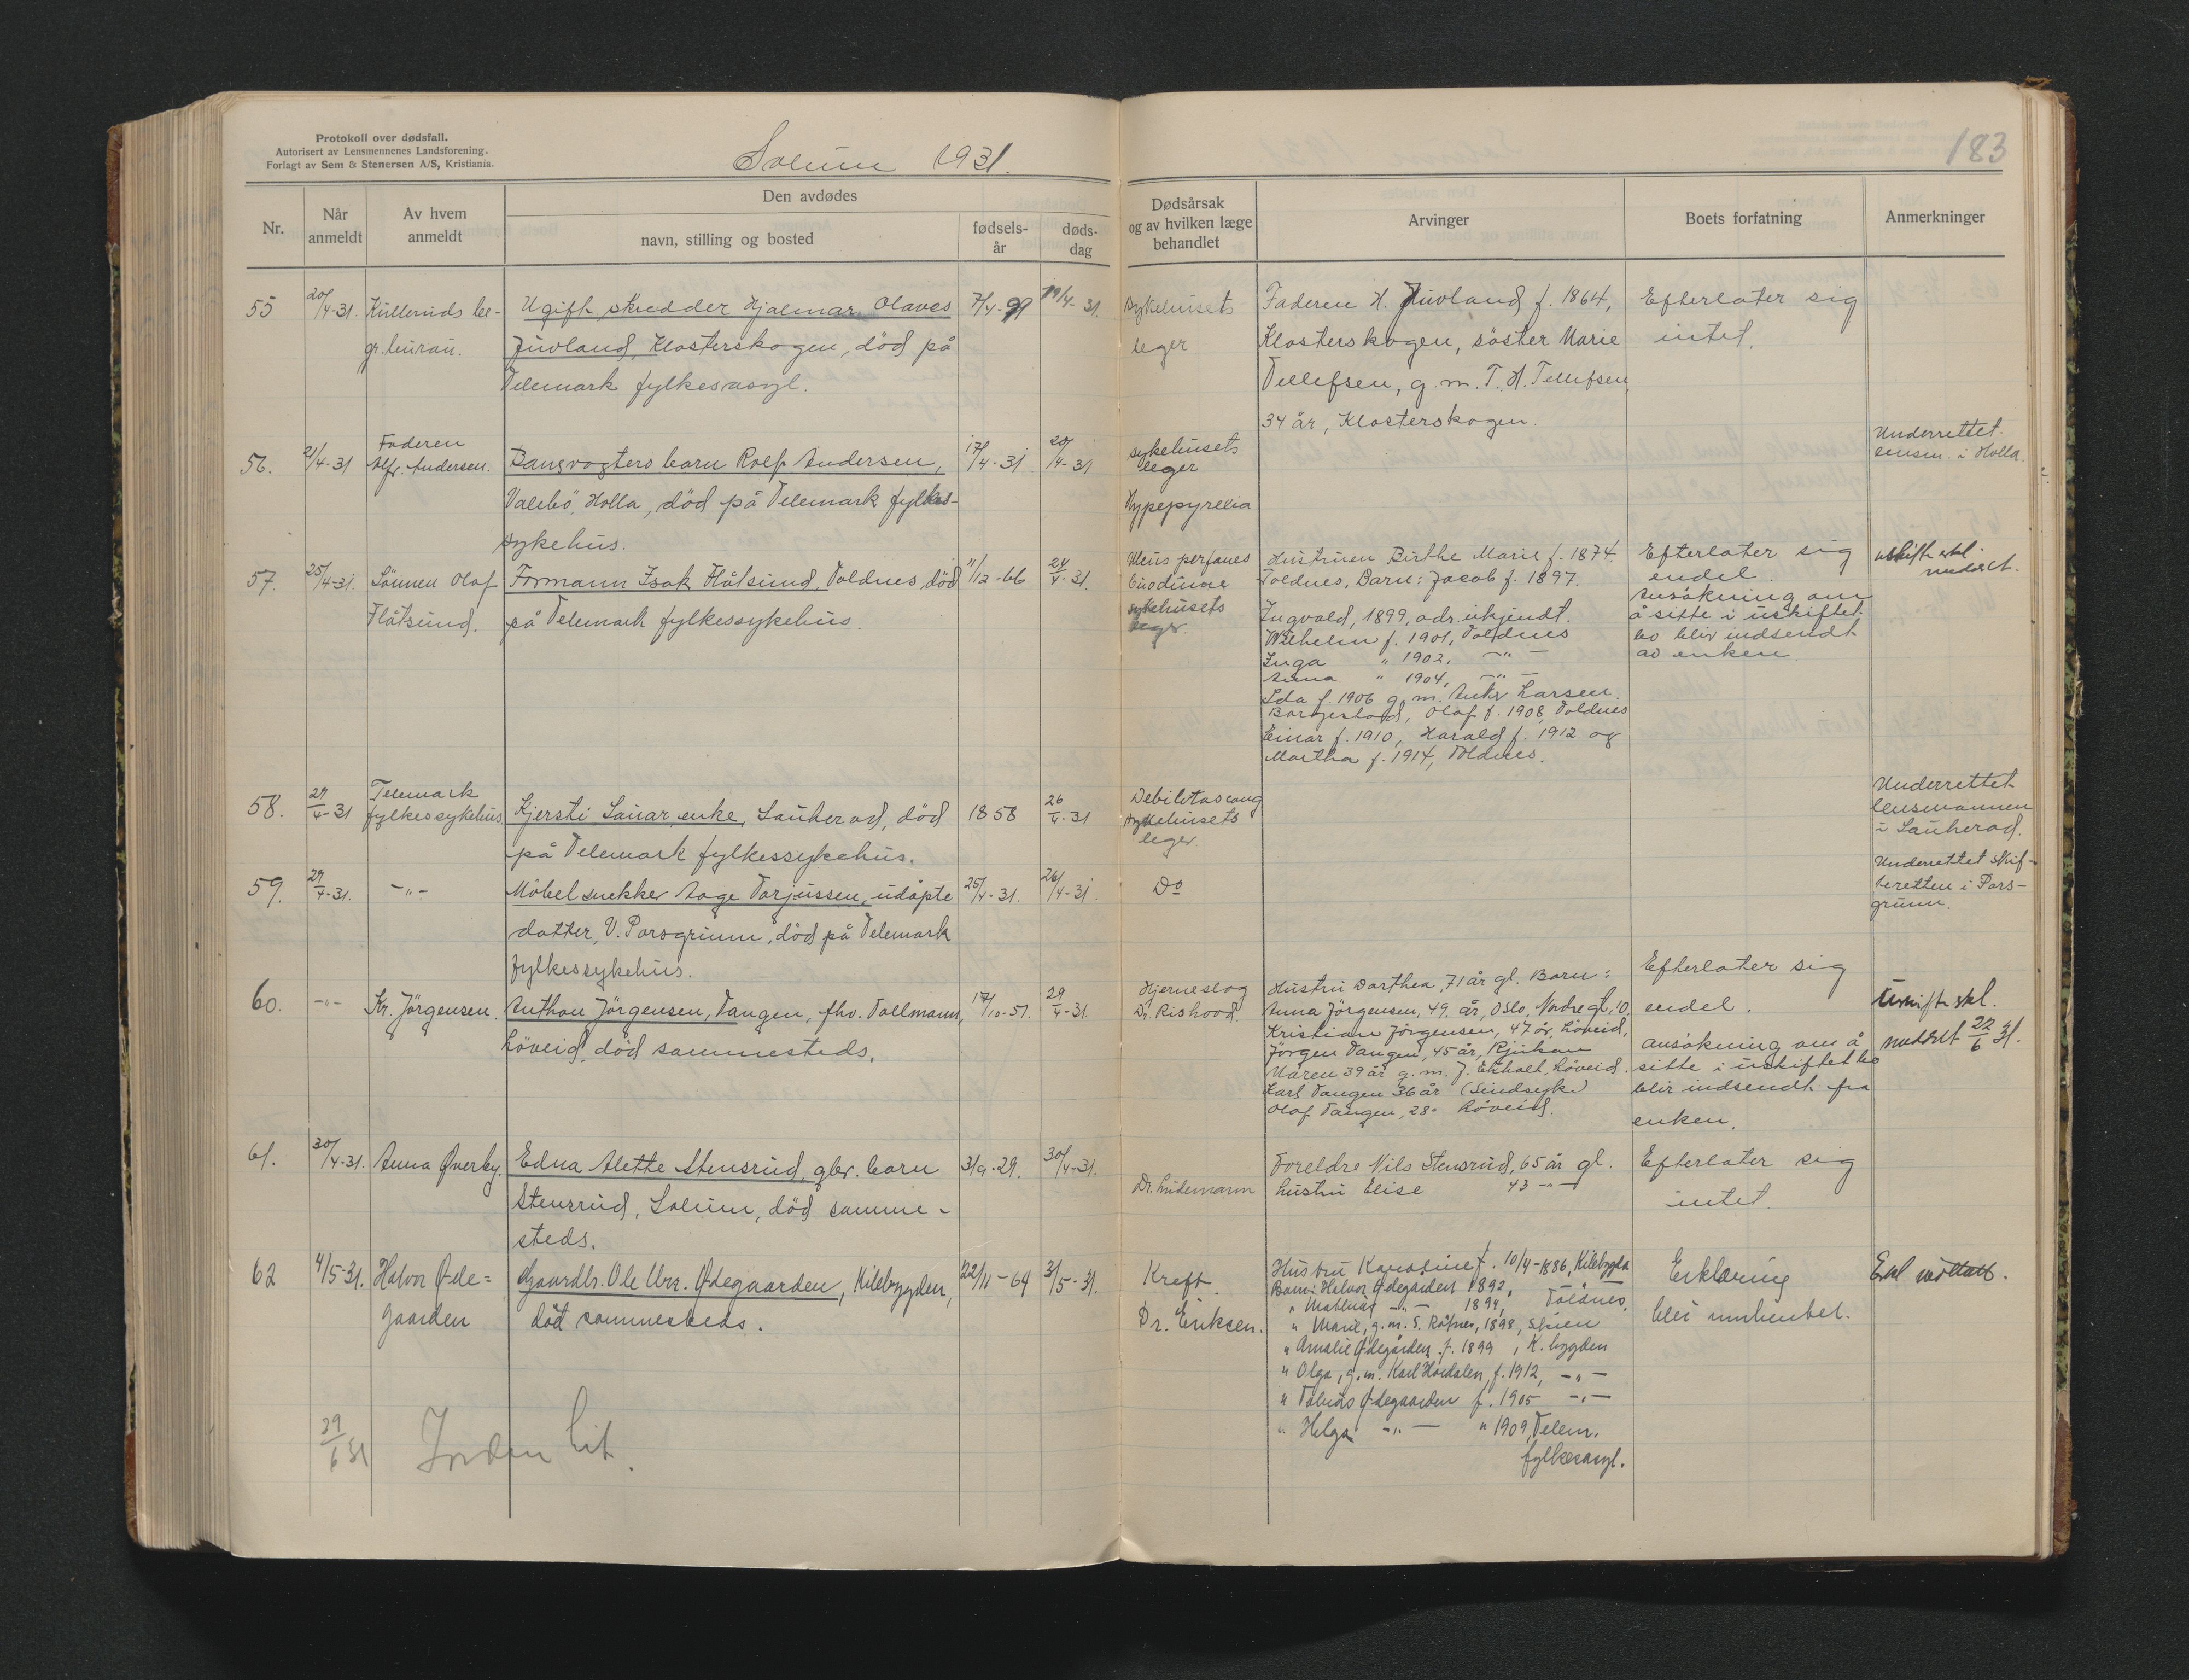 Protokoll over dødsfall.
Autorisert av Lensmennenes Landsforening.
Forlagt av Sem & Stenersen A/S, Kristiania.
Solum 1931.
183
Nr.
Når anmeldt
Av hvem anmeldt
Den avdødes
navn, stilling og bosted
fødsels-år
døds-dag
Dødsårsak og av hvilken læge behandlet
Arvinger
Boets forfatning
Anmerkninger
55
20/4-31.
Kulleruds be-
gr. burau.
Ugift skredder Hjalmar Olaves
Juvland, Klosterskogen, död på
Telemark fylkesasyl.
7/4-99
19/4-31.
Sykehusets
leger
Faderen H. Juvland f. 1864,
Klosterskogen, söster Marie
Tellefsen, g.m. T. H. Tellefsen,
34 år, Klosterskogen.
Efterlater sig
intet.
56.
21/4-31
Faderen
Alfr. Andersen.
Banevogters barn Rolf Andersen,
Valebö, Holla, död på Telemark fylkes-
sykehus.
17/4-31
20/4-31
sykehusets
leger
Hypepyrexia
Underrettet
lensm. i Holla.
57.
25/4-31.
Sönnen Olaf
Flåtsund.
Formann Isak Flåtsund, Voldnes, död
på Telemark fylkessykehus.
11/12-66
24/4-31.
Ulcus
sykehusets
leger.
Hustruen Birthe Marie f. 1874.
Voldnes, Barn: Jacob f. 1897.
Ingvald, 1899, adr. ukjendt.
Wilhelm f. 1901, Voldnes
Inga " 1902, -"-
Anna " 1904, -"-
Ida f. 1906 g.m. Larsen.
Borgestad, Olaf f. 1908, Voldnes
Einar f. 1910, Harald f. 1912 og
Martha f. 1914, Voldnes.
Efterlater sig
endel.
Ansökning om
å sitte i uskiftet
bo blir indsendt
av enken.
uskifte skl.
meddelt.
58.
29/4-31
Telemark
fylkessykehus
Kjersti Sauar, enke, Sauherad, död
på Telemark fylkessykehus.
1858
26/4-31
Debilitas cong
sykehusets
leger.
Underrettet
lensmannen
i Sauherad.
59.
29/4-31.
-"-
Möbelsnekker Aage Tarjussen, udöpte
datter, V. Porsgrunn, död på Telemark
fylkessykehus.
25/4-31.
26/4-31.
Do
Underrettet skif-
teretten i Pors-
grunn.
60.
-"-
Kr. Jörgensen.
Anthon Jörgensen, Tangen, fhv. Tollmann,
Löveid, död sammesteds.
17/10-57.
29/4-31
Hjerneslag
Dr. Rishovd.
Hustru Dorthea, 71 år gl. Barn:
Anna Jörgensen, 49 år, Oslo, Nordregt. 10.
Kristian Jörgensen, 47 år, Löveid,
Jörgen Tangen, 45 år, Rjukan
Maren 39 år g.m. J. Ekholt, Löveid.
Karl Tangen 36 år (Sindsyk)
Olaf Tangen, 28 " Löveid.
Efterlater sig
endel.
ansökning om å
sitte i uskiftet bo
blir indsendt fra
enken.
Uskifte skl.
meddelt 22/6 31.
61.
30/4-31.
Anna Øverby.
Edna Alette Stensrud, gbr. barn
Stensrud, Solum, död samme-
steds.
3/9-29.
30/4-31.
Dr. Lindemann
Foreldre Nils Stensrud, 65 år gl.
hustru Elise 43 -"-
Efterlater sig
intet.
62
4/5-31.
Halvor Øde=
gaarden
Gaardbr. Ole Urs. Ødegaarden, Kilebygden,
död sammesteds.
22/11-64
3/5-31.
Kreft.
Dr. Eriksen.
Hustru Karosine f. 10/4-1886, Kilebygda
Barn: Halvor Ødegaarden 1892, -"-
" Mathias -"- 1894, Voldnes.
" Marie, g.m. S. Röfnes, 1898, Skien
" Amalie Ødegården f. 1899, K.bygden
" Olga, g.m. Karl Hordalen, f. 1912, -"-
" Ødegaarden f. 1905 -"-
" Helga -"- " 1909, Telem.
fylkesasyl.
Erklæring
blir innhentet.
Erkl mottatt.
29/6 31
Inden hit.